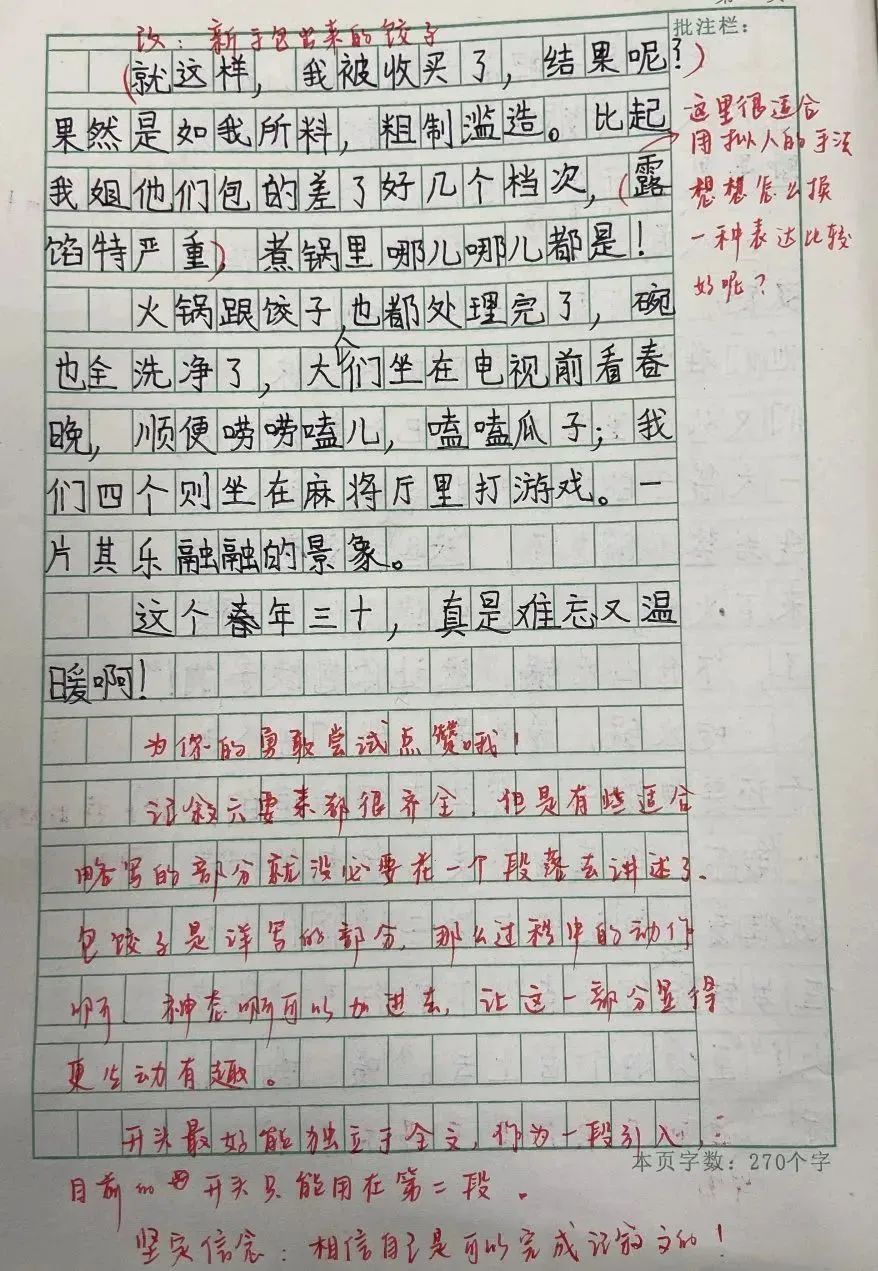 批注栏：
改：新手包出来的饺子
（就这样，我被收买了，结果呢？）
果然是如我所料，粗制滥造。比起
我姐他们包的差了好几个档次，（露
馅特严重），煮锅里哪儿哪儿都是！
这里很适合
用拟人的手法
想想怎么换
一种表达比较
好呢？
火锅跟饺子也都处理完了，碗
也全洗净了，大人们坐在电视前看春
晚，顺便唠唠嗑儿，嗑嗑瓜子；我
们四个则坐在麻将厅里打游戏。一
片其乐融融的景象。
这个春年三十，真是难忘又温
暖啊！
为你的勇敢尝试点赞哦！
记叙六要素都很齐全，但是有些适合
略写的部分就没必要在一个段落去讲述了。
包饺子是详写的部分，那么过程中的动作
啊、神态啊可以加进去，让这一部分显得
更生动有趣。
开头最好能独立于全文，作为一段引入，
目前的开头只能用在第二段。
本页字数：270个字
坚定信念：相信自己是可以完成记叙文的！